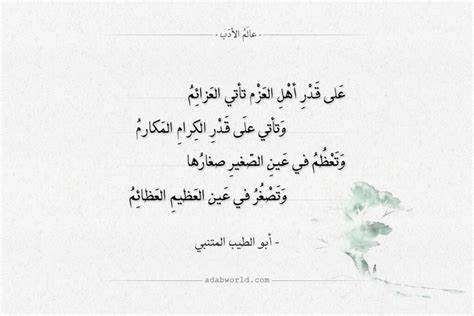 عالَمُ الأدَب
عَلى قَدْرِ أهْلِ العَزْم تأتي العَزائِمُ
وَتأتي علَى قَدْرِ الكِرامِ المَكارمُ
وَتَعْظُمُ في عَينِ الصّغيرِ صغارُها
وَتَصْغُرُ في عَين العَظيمِ العَظائِمُ
- أبو الطيب المتنبي
adabworld.com